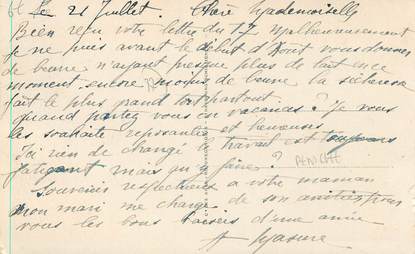 Le 21 Juillet. Chère Mademoiselle
Bien reçu votre lettre du 17 Malheureusement
je ne puis avant le début d'Août vous donner
de beurre n'ayant presque plus de lait en ce
moment encore moins de beurre la sécheresse
fait le plus grand tort partout
quand partez vous en vacances? Je vous
les souhaite reposantes et heureuses
Ici rien de changé le travail est toujours
fatigant mais qu'y faire?
Souvenirs respectueux a votre maman
mon mari me charge de son amitiés pour
vous les bons baisers d'une amie